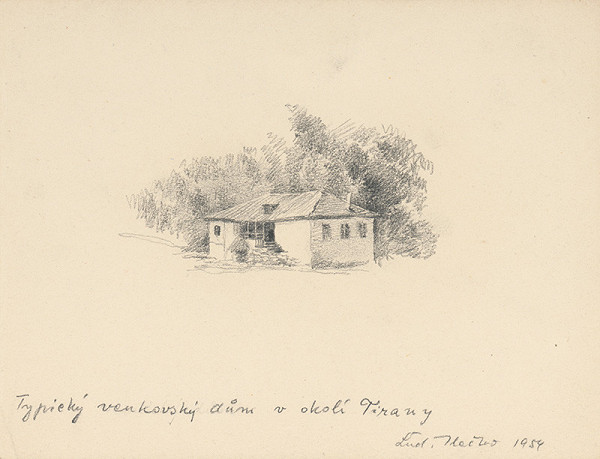 Typický venkovský dům v okolí Tirany
Lud. 1954